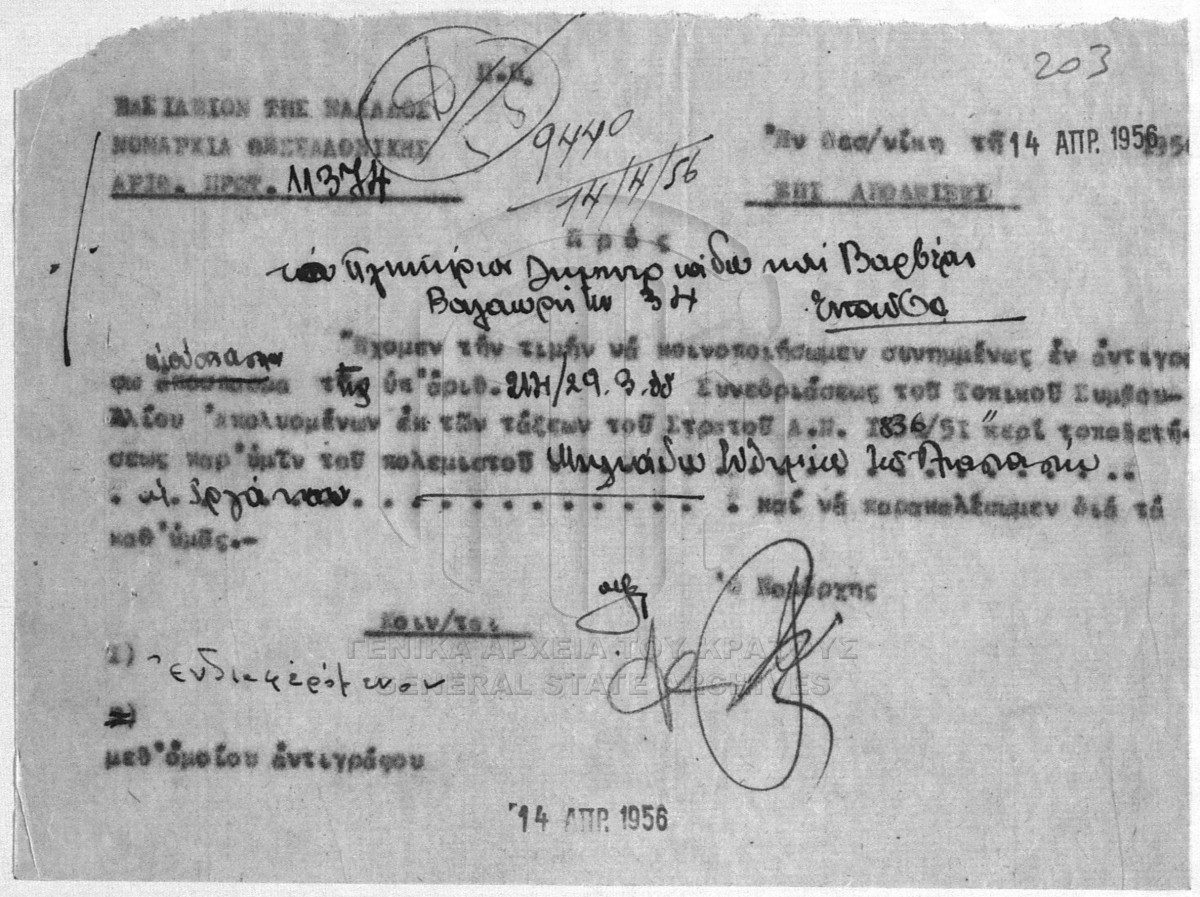 203
Π.Π.
ΒΑΣΙΛΕΙΟΝ ΤΗΣ ΕΛΛΑΔΟΣ
ΝΟΜΑΡΧΙΑ ΘΕΣΣΑΛΟΝΙΚΗΣ
ΑΡΙΘ. ΠΡΩΤ. 11374
9440
14/4/56
Ἐν Θεσ/νίκῃ τῇ 14 ΑΠΡ. 1956
ΕΠΙ ΑΠΟΔΕΙΞΕΙ
Πρός
Βαλαωρίτου 34 Ἐνταῦθα
Ἔχομεν τήν τιμήν νά κοινοποιήσωμεν συνημμένως ἐν ἀντιγρά
φῳ ἀπόσπασμα τῆς ὑπ' ἀριθ. Συνεδριάσεως τοῦ Τοπικοῦ Συμβου-
λίου Ἀπολυομένων ἐκ τῶν τάξεων τοῦ Στρατοῦ Α.Ν. 1836/51 "περί τοποθετή-
σεως παρ' ὑμῖν τοῦ πολεμιστοῦ
καί νά παρακαλέσωμεν διά τά
καθ' ὑμᾶς.-
Ὁ Νομάρχης
Κοιν/ται
1) Ἐνδιαφερόμενον
2)
μεθ' ὁμοίου ἀντιγράφου
ΓΕΝΙΚΑ ΑΡΧΕΙΑ ΤΟΥ ΚΡΑΤΟΥΣ
GENERAL STATE ARCHIVES
14 ΑΠΡ. 1956